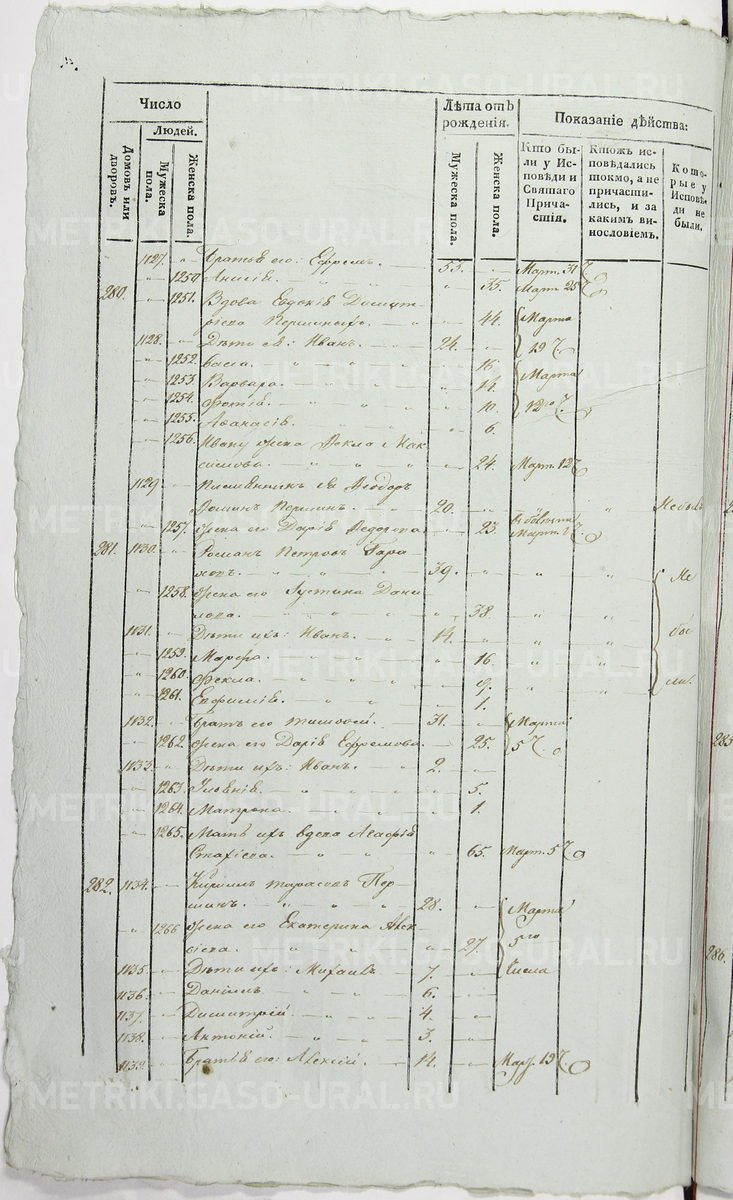 Число
Людей.
Домовъ или дворовъ.
Мужеска пола.
Женска пола.
Лѣта отъ рожденія.
Мужеска пола.
Женска пола.
Показаніе дѣйства:
Кто были у Исповѣди и Святаго Причастія.
Ктожъ исповѣдались токмо, а не причастились, и за какимъ винословіемъ.
Которые у Исповѣди не были.
1127. Братья его: Ефремъ. 53. Март. 31
1250 35. Март. 25
280. 1251. Вдова Евдокія Димит-
44. Марта
1128. Дѣти ея: Иванъ. 24. 19
1252. 16. Марта
1253. Варвара. 14.
1254. 10. 12го
1255. Афанасія. 6.
1256. Ивану жена Фекла Мак-
симова. 24. Март. 12
1129 Феодоръ
20. Небылъ
1257. жена его Дарія 23. Март.
281. 1130. Романъ Петровъ
39. Не
1258. жена его Иустина Дани-
лова. 38.
1131. Дѣти ихъ: Иванъ. 14. бы
1259. Марфа. 16.
1260. Фекла. 9. ли.
1261. Евфимія. 1.
1132. Братъ его Тимофей. 31. Марта
1262. жена его Дарія Ефремова. 25. 5
1133. Дѣти ихъ: Иванъ. 2.
1263. 5.
1264. Матрона. 1.
1265. Мать ихъ вдова Агафія
65. Март. 5
282. 1134. Кириллъ Тарасовъ Пер-
шинъ. 28. Марта
1266 жена его Екатерина Алек-
сіева. 27. 5го
1135. Дѣти ихъ: Михаилъ 7. Числа
1136. Даніилъ. 6.
1137. Димитрій 4.
1138. Антоній. 3.
1139. Братья его: Алексій. 14. Мар. 19
285
286.
METRIKI.GASO-URAL.RU